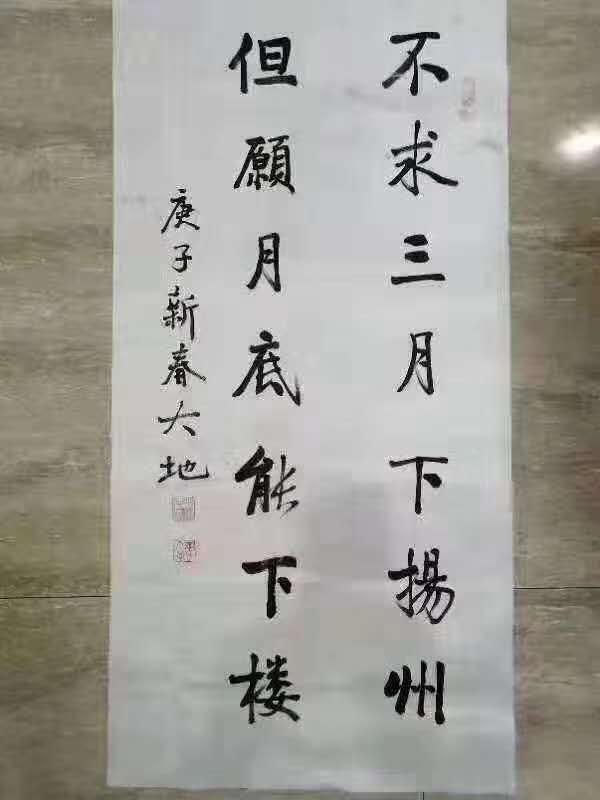 不求三月下揚州
但願月底能下楼
庚子新春大地